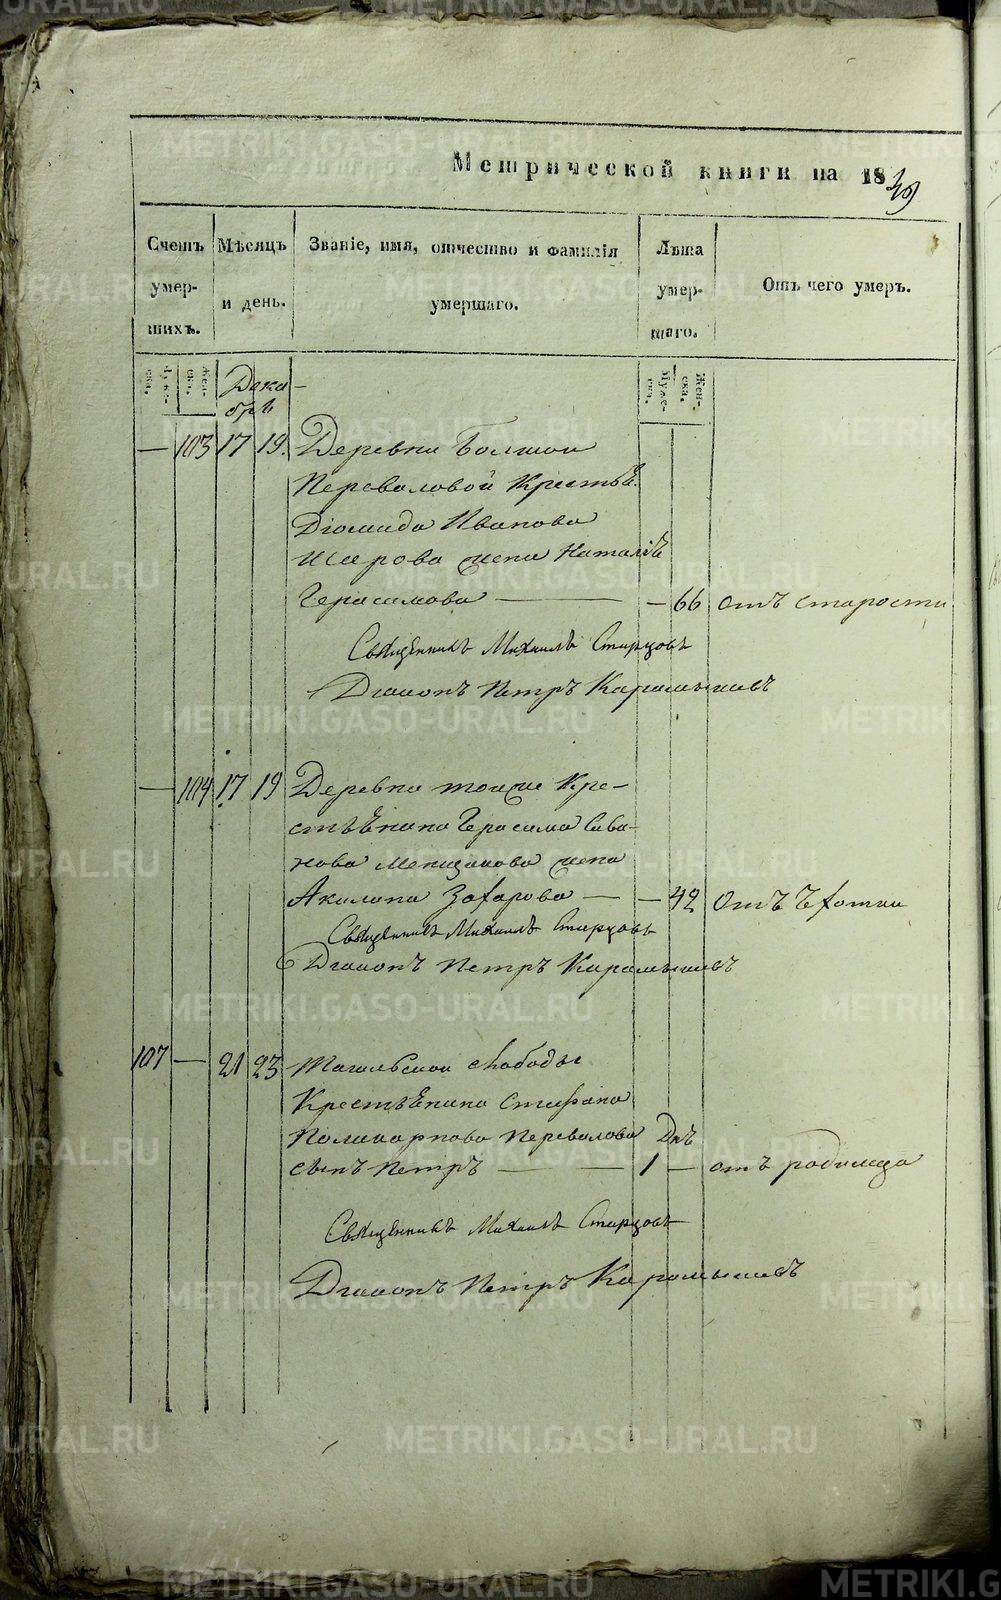 Метрической книги на 1849
Счетъ умер- шихъ.
Мѣсяцъ и день.
Званіе, имя, отчество и фамилія умершаго.
Лѣта умер- шаго.
Отъ чего умеръ.
Муже- ска.
Жен- ска.
Дека-
брь
Муже- ска.
Жен- ска.
— 103 17 19. Деревни Болшои
Переваловой Крестьѣ.
Діомида Иванова
жена Наталіѣ
Герасимова — — 66 отъ старости
Священникъ Михаилъ Старцовъ
Діаконъ Петръ Карамышевъ
— 104 17 19 Деревни тоиже Кре-
стьѣнина Герасима
нова жена
Акилина Захарова — — 42 Отъ
Священникъ Михаилъ Старцовъ
Діаконъ Петръ Карамышевъ
107 — 21 23 Тагильскои слободы
Крестьѣнина Стефана
Поликарпова Перевалова Днь
сынъ Петръ — 1 — отъ родимца
Священникъ Михаилъ Старцовъ
Діаконъ Петръ Карамышевъ
METRIKI.GASO-URAL.RU